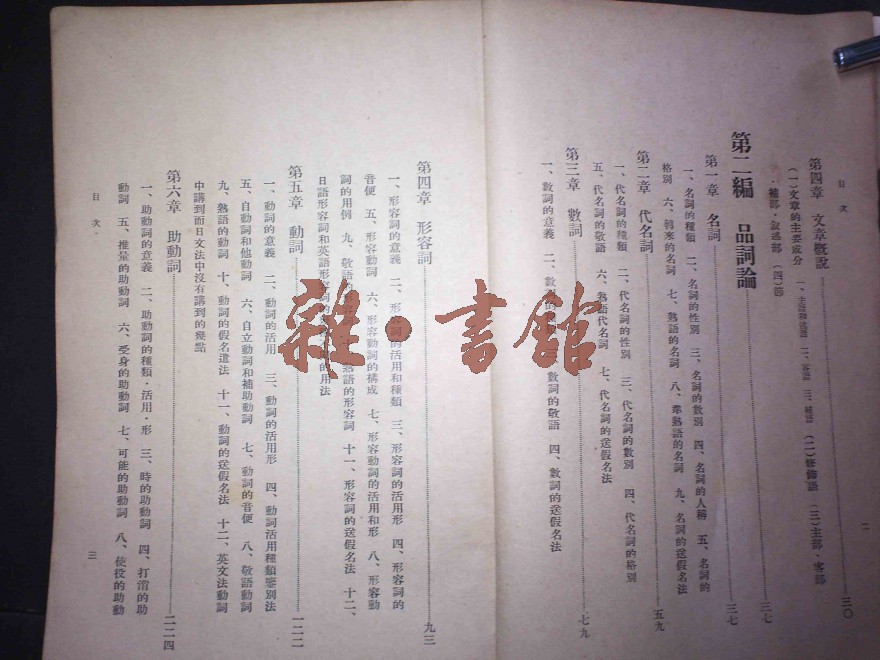 目次
第四章 文章概說 三〇
(一)文章的主要成分 一、主語和述語 二、客語 三、補語 (二)修飾語 (三)主部·客部
·補部·敍述部 (四)節
第二編 品詞論 三七
第一章 名詞 三七
一、名詞的種類 二、名詞的性別 三、名詞的數別 四、名詞的人稱 五、名詞的
格別 六、轉來的名詞 七、熟語的名詞 八、準熟語的名詞 九、名詞的送假名法
第二章 代名詞 五九
一、代名詞的種類 二、代名詞的性別 三、代名詞的數別 四、代名詞的格別
五、代名詞的敬語 六、熟語代名詞 七、代名詞的送假名法
第三章 數詞 七九
一、數詞的意義 二、數詞的 三、數詞的敬語 四、數詞的送假名法
二
第四章 形容詞 九三
一、形容詞的意義 二、形容詞的活用和種類 三、形容詞的活用形 四、形容詞的
音便 五、形容動詞 六、形容動詞的構成 七、形容動詞的活用和形 八、形容動
詞的用例 九、敬語的 熟語的形容詞 十一、形容詞的送假名法 十二、
日語形容詞和英語形容詞的 的用法
第五章 動詞 一二二
一、動詞的意義 二、動詞的活用 三、動詞的活用形 四、動詞活用種類鑒別法
五、自動詞和他動詞 六、自立動詞和補助動詞 七、動詞的音便 八、敬語動詞
九、熟語的動詞 十、動詞的假名遣法 十一、動詞的送假名法 十二、英文法動詞
中講到而日文法中沒有講到的幾點
第六章 助動詞 二二四
一、助動詞的意義 二、助動詞的種類·活用·形 三、時的助動詞 四、打消的助
動詞 五、推量的助動詞 六、受身的助動詞 七、可能的助動詞 八、使役的助動
目次
三
雜·書館